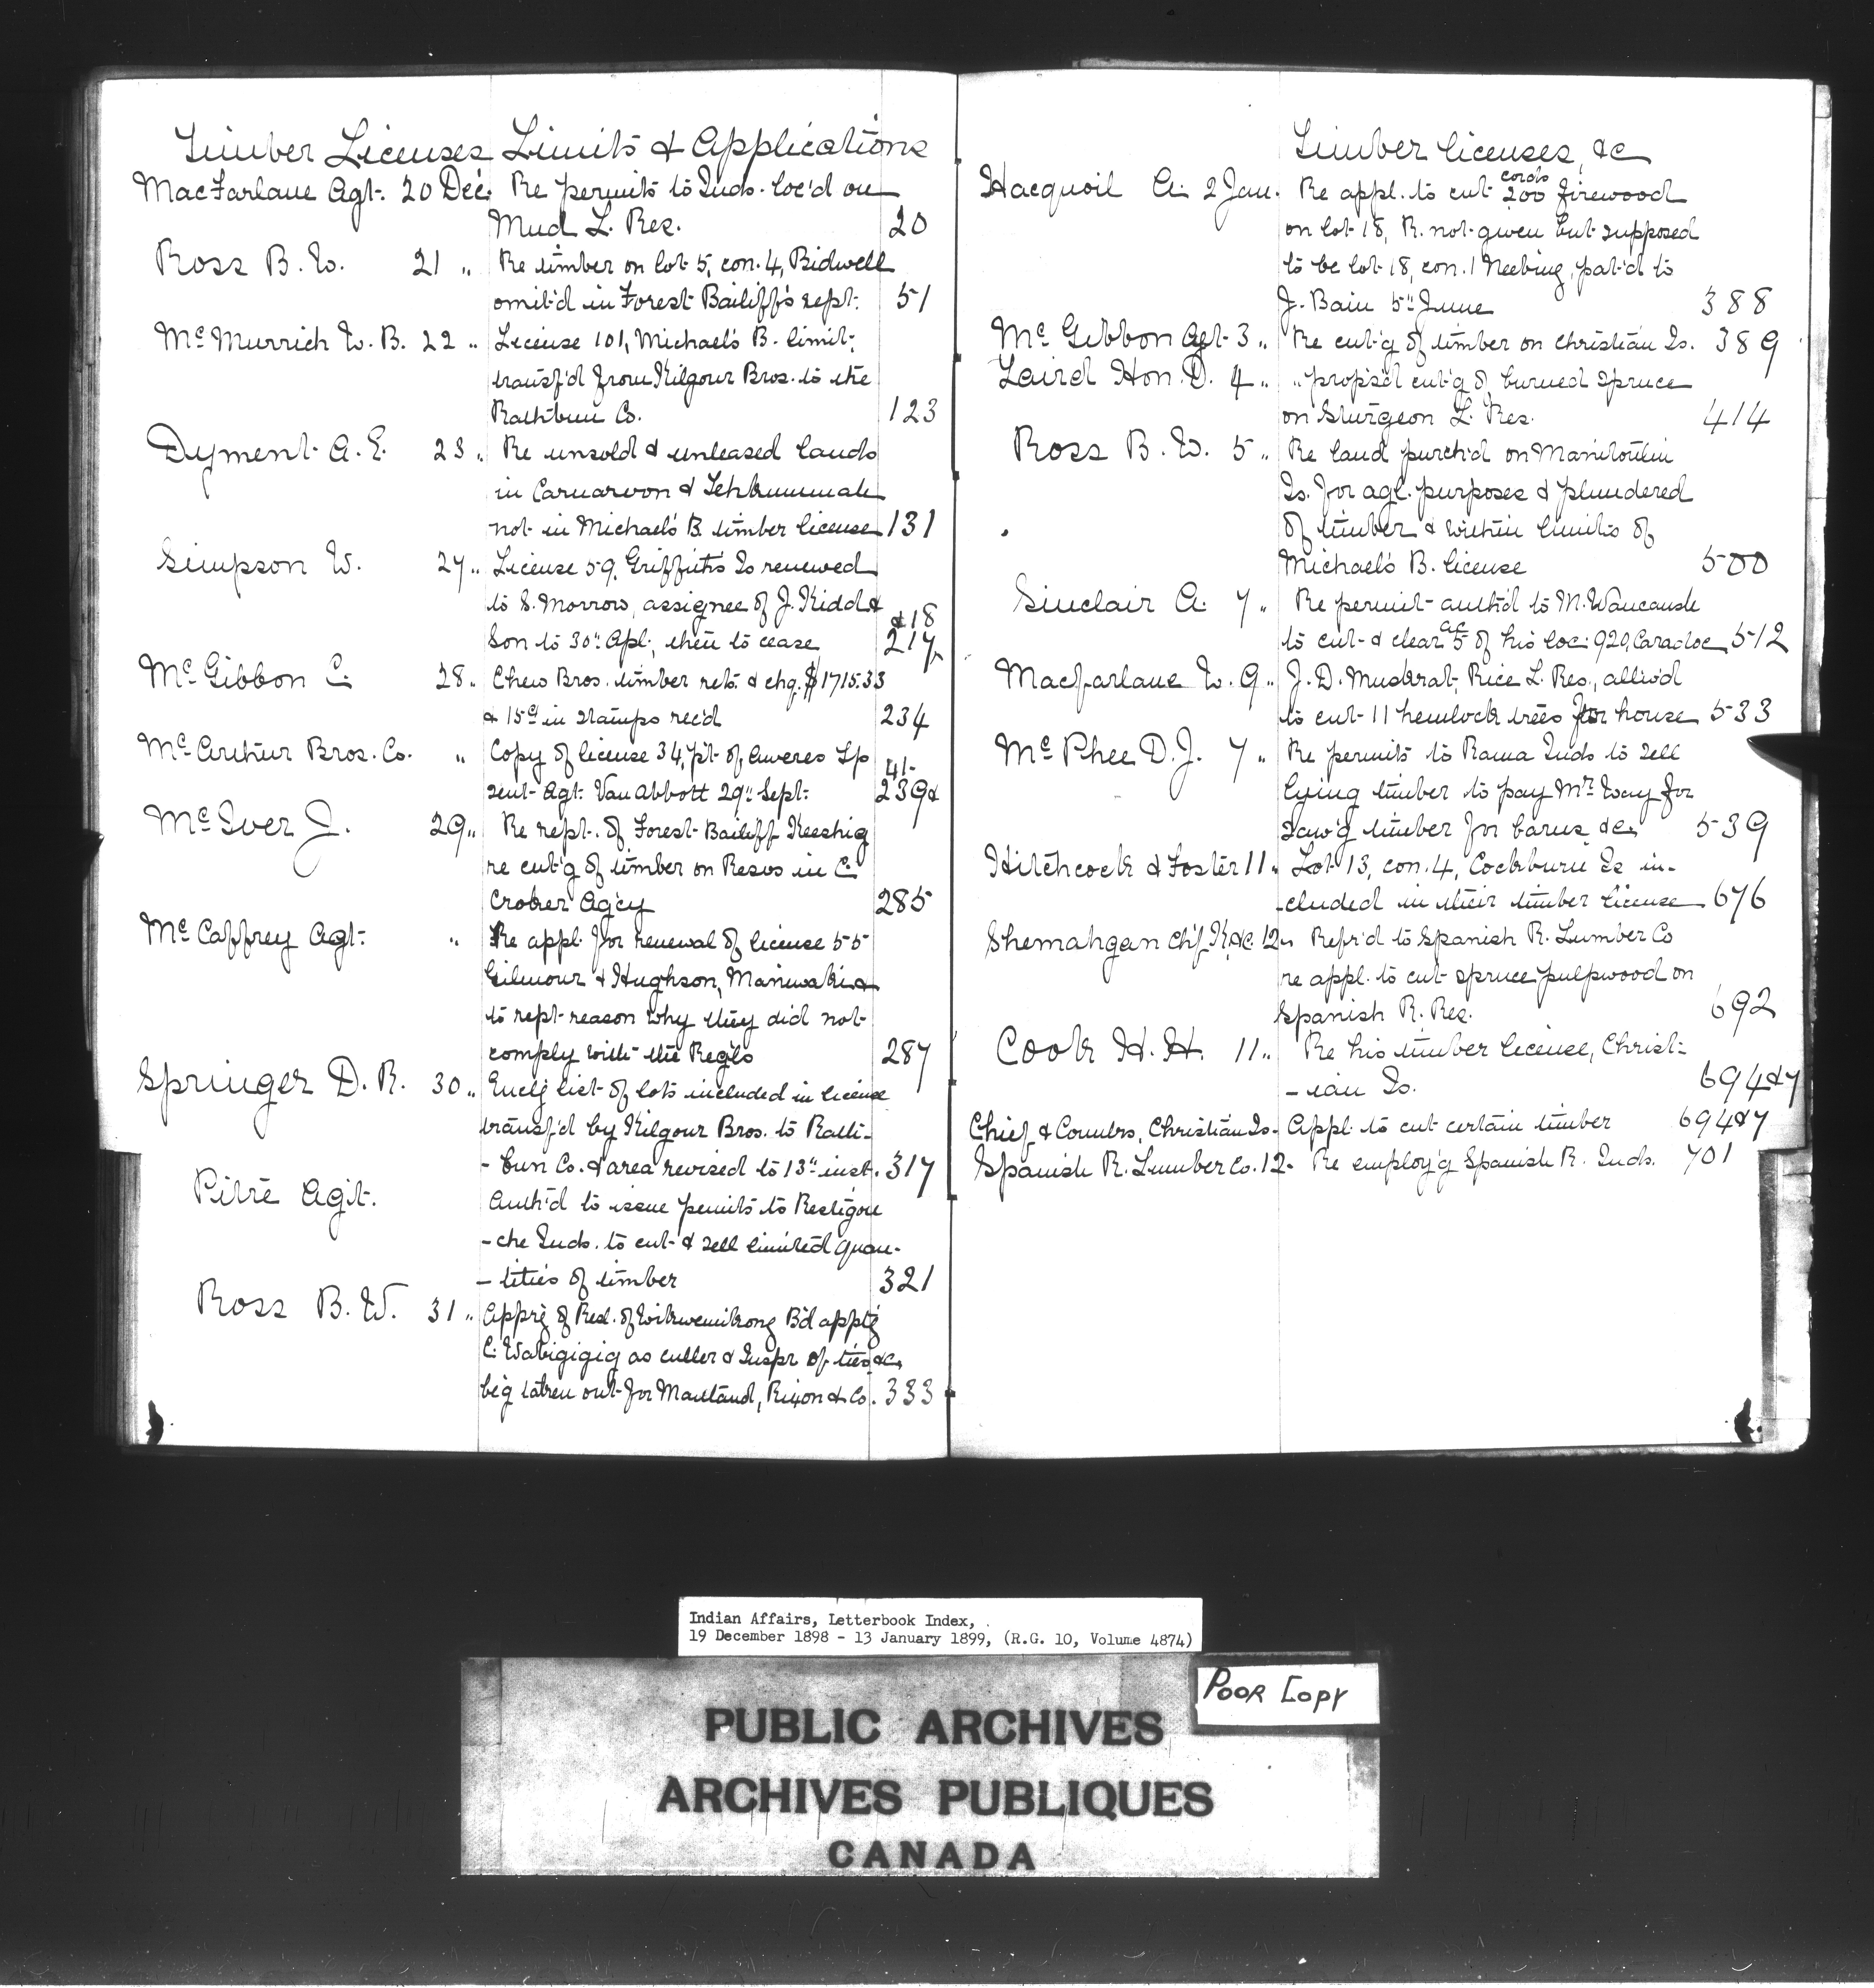 Timber Licenses Limits & Applications
MacFarlane Agt. 20 Dec. Re permits to Inds. loc'd on
Mud L. Res. 20
Ross B. W. 21 " Re timber on lot 5, con. 4, Bidwell
omit'd in Forest Bailiff's rept. 51
McMurrich W. B. 22 " License 101, Michael's B. limit,
transf'd from Kilgour Bros. to the
Rathbun Co. 123
Dyment A. E. 23 " Re unsold & unleased lands
in Carnarvon & Tehkummah
not in Michael's B. timber license 131
Simpson W. 27 " License 59, Griffith's Is renewed
to S. Morrow, assignee of J. Kidd &
Son to 30" Apl., then to cease 217 & 18
McGibbon C. 28 " Chew Bros. timber rets. & chq. $1715.33
& 15c in stamps rec'd 234
McArthur Bros. Co. " Copy of license 34, pt. of Aweres Tp
sent Agt. Van Abbott 29" Sept. 239 & 41
McIver J. 29 " Re rept. of Forest Bailiff Keeshig
re cut'g of timber on Resvs in C.
Croker Ag'cy 285
McCaffrey Agt. " Re appl. for renewal of license 55
Gilmour & Hughson, Maniwaki &
to rept reason why they did not
comply with the Reg'ls 287
Springer D. R. 30 " Encl'g list of lots included in license
transf'd by Kilgour Bros. to Rath-
-bun Co. & area revised to 13" inst. 317
Pitre Agt. Auth'd to issue permits to Restigou
-che Inds. to cut & sell limited quan-
-tities of timber 321
Ross B. W. 31 " App'g of Resl. of Wikwemikong B'd app't'g
C. Wabigigig as culler & Inspr of ties &c,
be'g taken out for Maitland, Rixon & Co. 333
Timber licenses, &c
Hacquoil A. 2 Jan. Re appl. to cut 200 cords firewood
on lot 18, R. not given but supposed
to be lot 18, con. 1 Neebing, pat'd to
J. Bain 5" June 388
McGibbon Agt. 3 " Re cut'g of timber on Christian Is. 389
Laird Hon. D. 4 " " propos'd cut'g of burned spruce
on Sturgeon L. Res. 414
Ross B. W. 5 " Re land purch'd on Manitoulin
Is. for agl. purposes & plundered
of timber & within limits of
Michael's B. license 500
Sinclair A. 7 " Re permit auth'd to M. Waucaush
to cut & clear 5 ac of his loc: 920, Caradoc 512
Macfarlane W. 9 " J. D. Muskrat, Rice L. Res., allow'd
to cut 11 hemlock trees for house 533
McPhee D. J. 7 " Re permits to Rama Inds to sell
lying timber to pay Mr Way for
saw'g timber for barns &c. 539
Hitchcock & Foster 11 " Lot 13, con. 4, Cockburn Is in-
-cluded in their timber license 676
Shemahgan Ch'f K. &c. 12 " Refr'd to Spanish R. Lumber Co
re appl. to cut spruce pulpwood on
Spanish R. Res. 692
Cook H. H. 11 " Re his timber license, Christ-
-ian Is. 694 & 7
Chief & Counlrs, Christian Is - Appl. to cut certain timber 694 & 7
Spanish R. Lumber Co. 12 - Re employ'g Spanish R. Inds. 701
Indian Affairs, Letterbook Index,
19 December 1898 - 13 January 1899, (R.G. 10, Volume 4874)
Poor Copy
PUBLIC ARCHIVES
ARCHIVES PUBLIQUES
CANADA